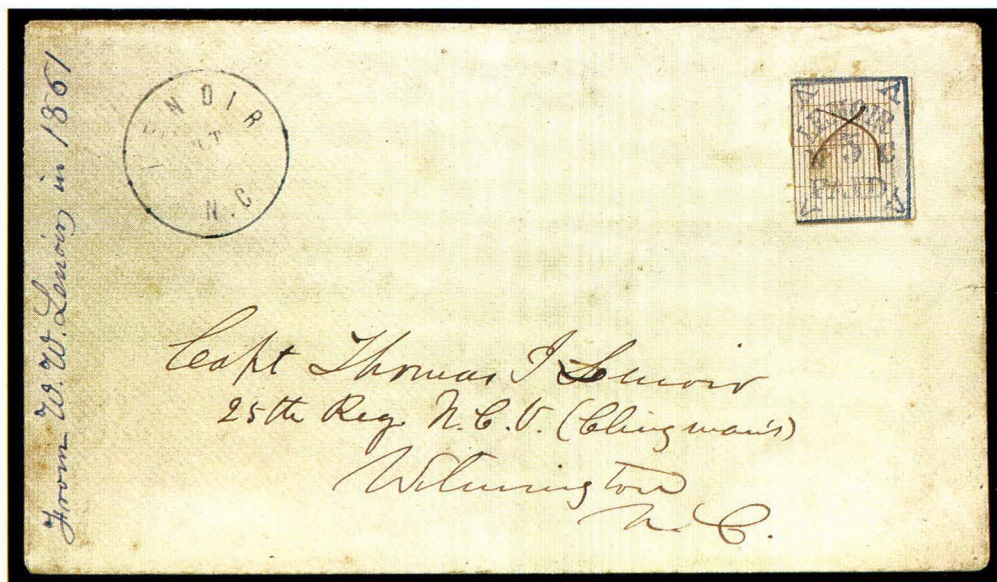 From W. W. Lenoir in 1861
NOIR
N.C
LENOIR
5 C
PAID
Capt Thomas I Lenoir
25th Reg N.C.V. (Clingman's)
Wilmington
N. C.